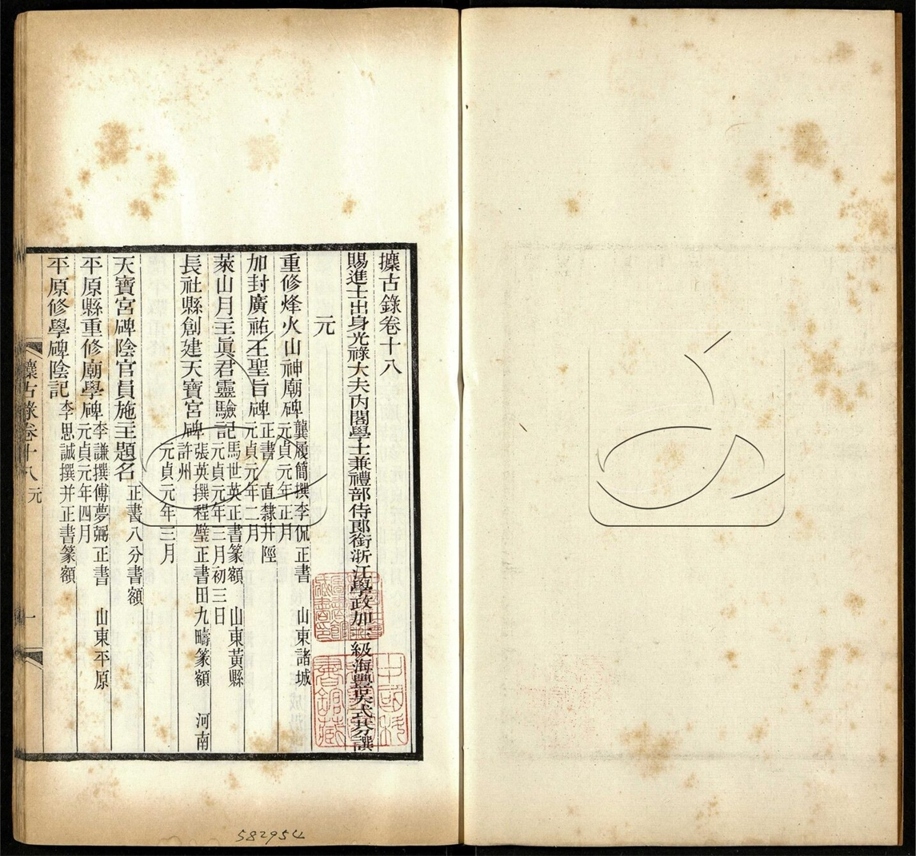 攈古錄卷十八
賜進士出身光祿大夫內閣學士兼禮部侍郎銜浙江學政加一級海豐吳式芬譔
元
重修烽火山神廟碑 龔履簡撰李侃正書 山東諸城
元貞元年正月
加封廣祐王聖旨碑 正書 直隸井陘
元貞元年二月
萊山月主眞君靈驗記 馬世英正書篆額 山東黃縣
元貞元年三月初三日
長社縣創建天寶宮碑 張英撰程璧正書田九疇篆額 河南
許州
元貞元年三月
天寶宮碑陰官員施主題名 正書八分書額
平原縣重修廟學碑 李謙撰傅夢弼正書 山東平原
元貞元年四月
平原修學碑陰記 李思誠撰并正書篆額
攈古錄卷十八 元 一
582954